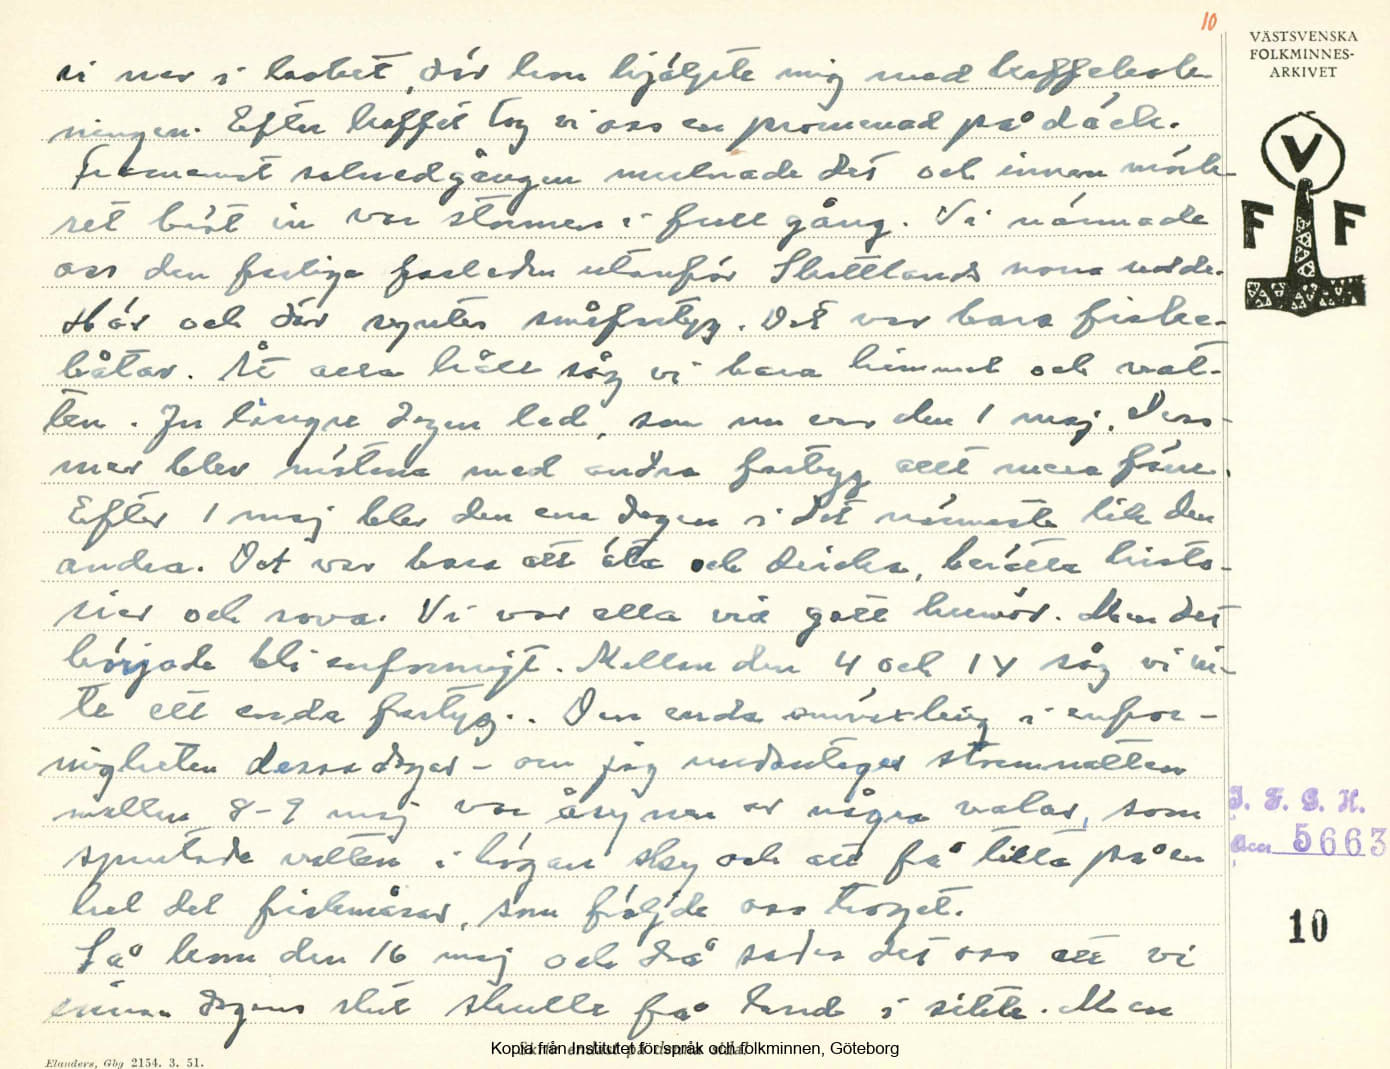 10
VÄSTSVENSKA
FOLKMINNES-
ARKIVET
V
F F
vi ner i köket, där hon hjälpte mig med kaffekok-
ningen. Efter kaffet tog vi oss en promenad på däck.
Framemot solnedgången mulnade det och innan mörk-
ret bröt in var stormen i full gång. Vi närmade
oss den farliga farleden utanför Shettlands norra udde.
Här och där syntes småfartyg. Det var bara fiske-
båtar. Åt alla håll såg vi bara himmel och vat-
ten. Ju längre dagen led, som nu var den 1 maj. Dess-
mer blev mötena med andra fartyg allt mera färre.
Efter 1 maj blev den ena dagen i det närmaste lik den
andra. Det var bara att äta och dricka, berätta histo-
rier och sova. Vi var alla vid gott humör. Men det
började bli enformigt. Mellan den 4 och 14 såg vi in-
te ett enda fartyg.. Den enda omväxling i enfor-
migheten dessa dagar - om jag undantager stormnatten
mellan 8-9 maj var åsynen av några valar, som
sprutade vatten i högan sky och att få titta på en
hel del fiskmåsar, som följde oss troget.
Så kom den 16 maj och då sades det oss att vi
innan dagens slut skulle få land i sikte. Men
I. F. G. H.
Acc 5663
10
Elanders, Gbg 2154. 3. 51.
Kopia från Institutet för språk och folkminnen, Göteborg